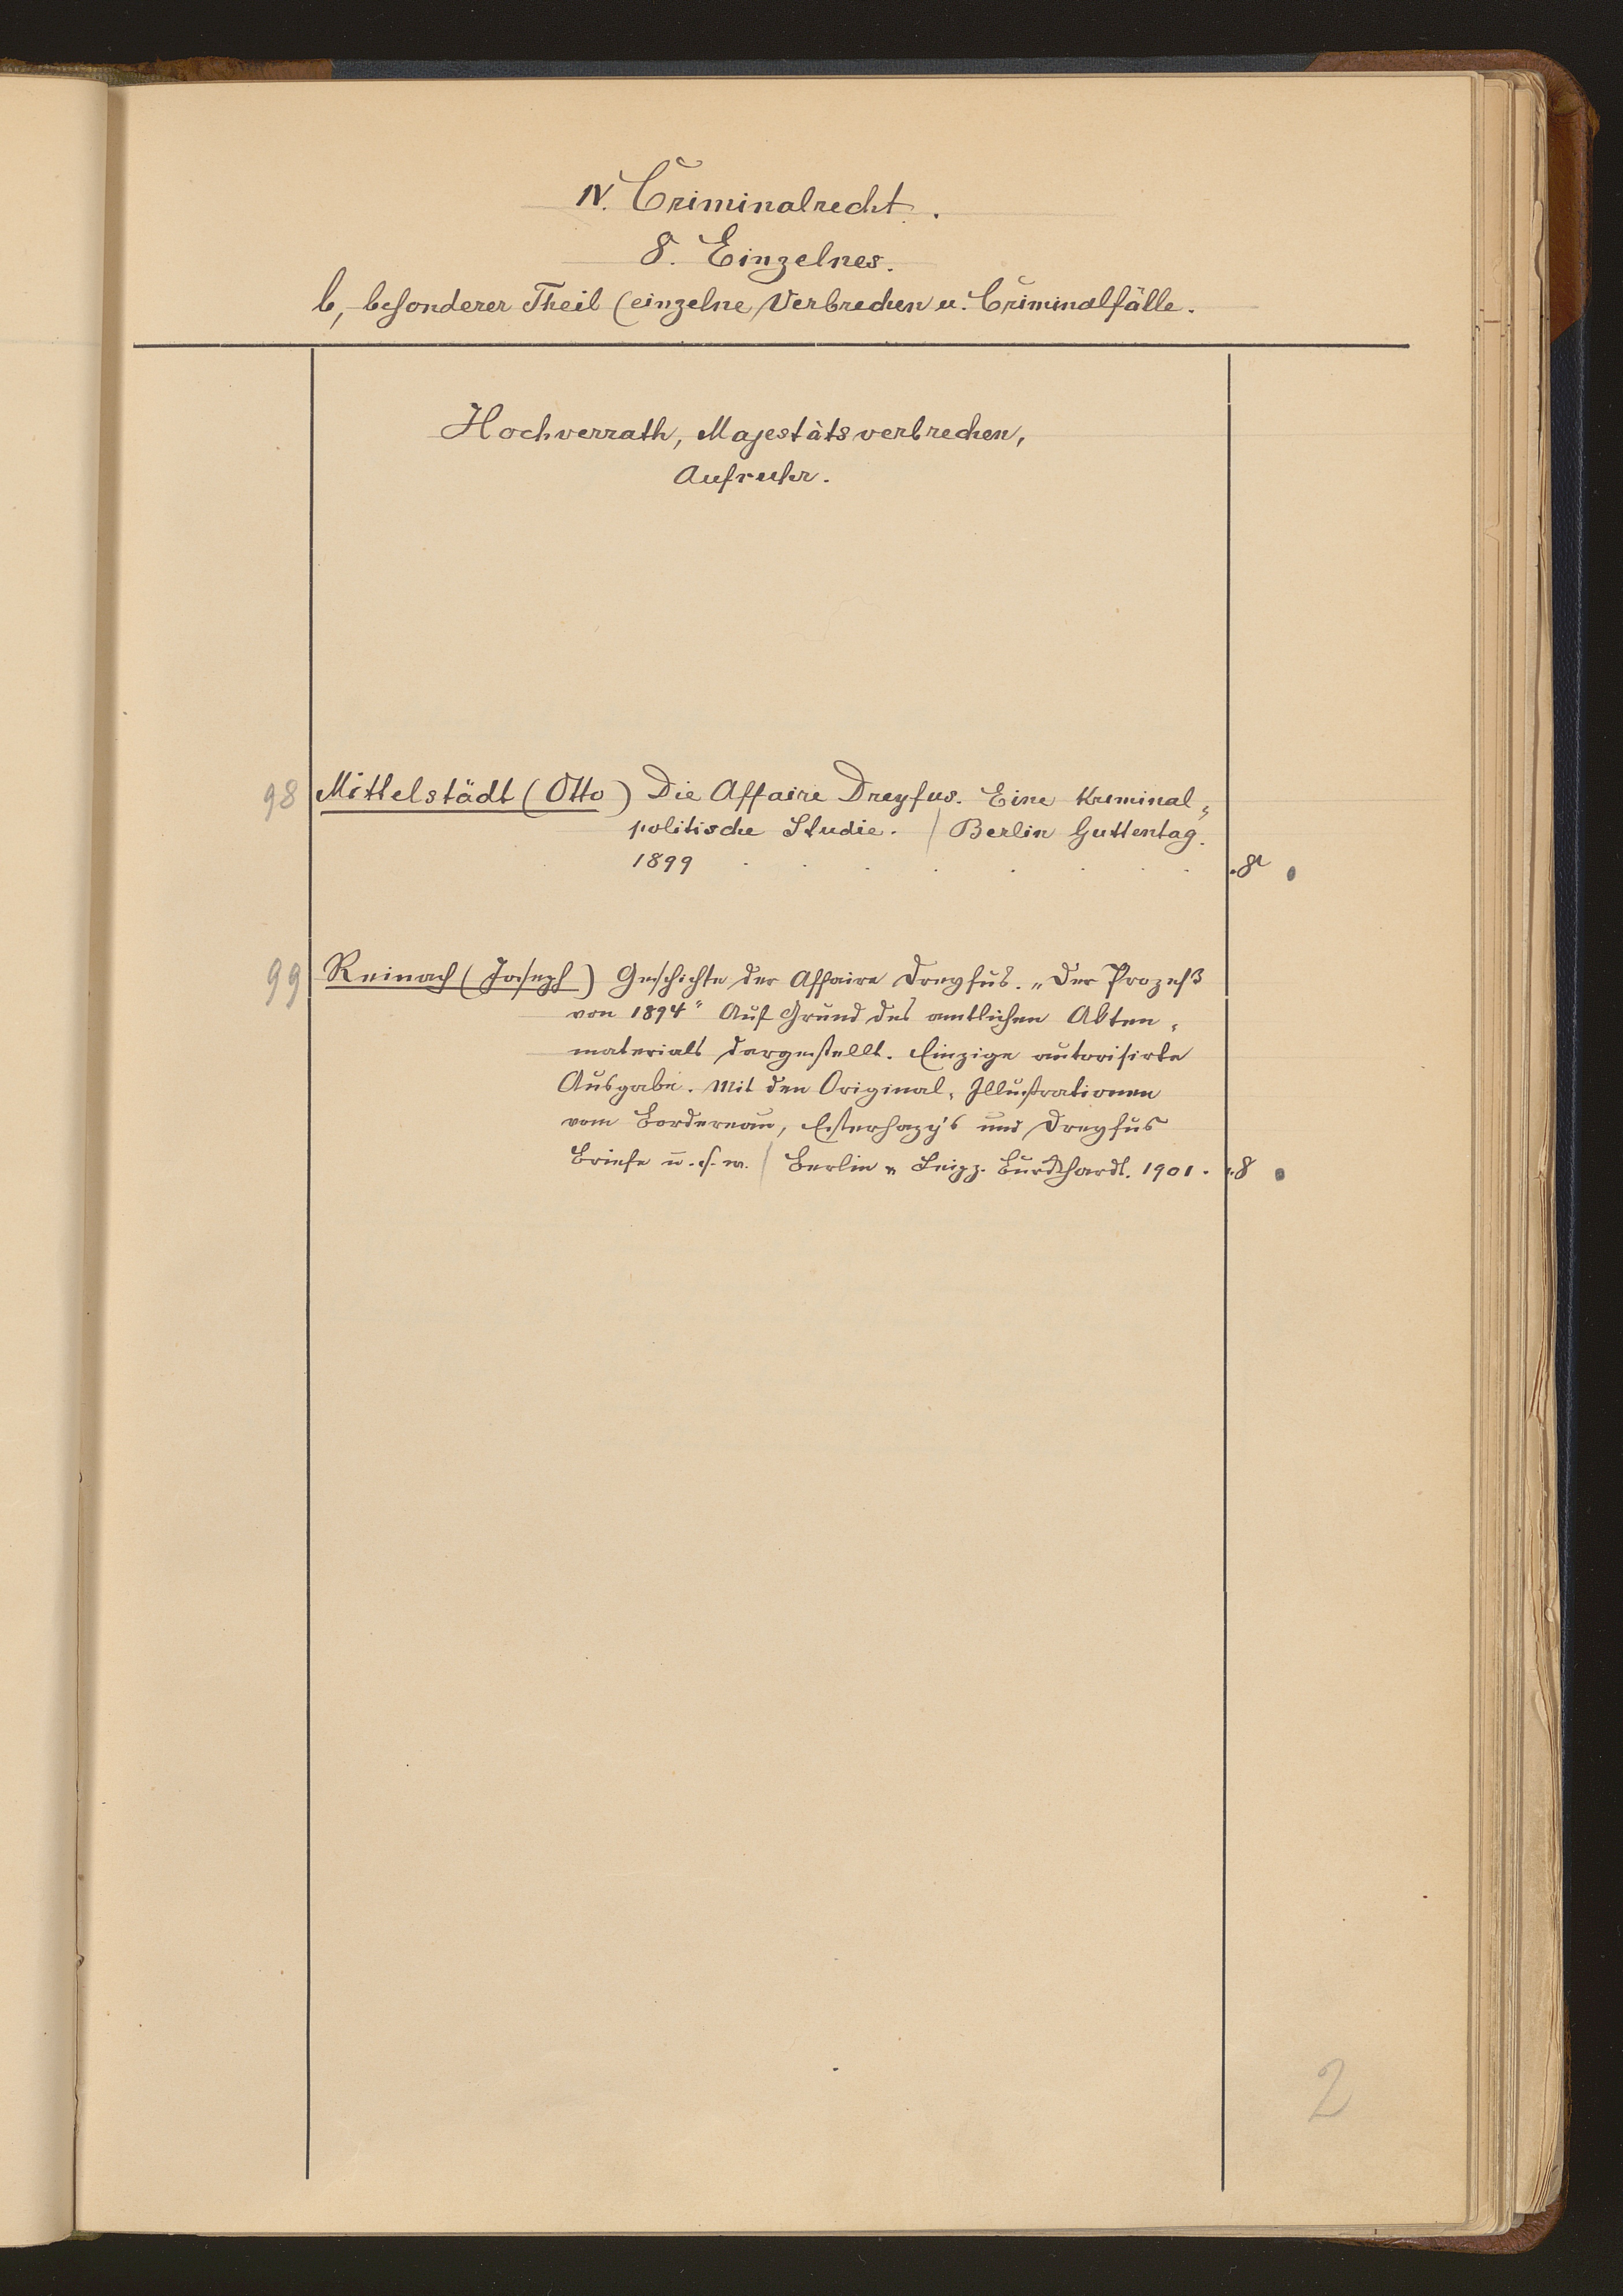 IV. Criminalrecht.
8. Einzelnes.
b, besonderer Theil (einzelne Verbrechen u. Criminalfälle.
Hochverrath, Majestätsverbrechen,
Aufruhr.
98 Mittelstädt (Otto) Die Affaire Dreyfus. Eine Kriminal=
politische Studie. / Berlin Guttentag.
1899 . . . . . . . 8°
99 Reinach (Joseph) Geschichte der Affaire Dreyfus. „Der Prozeß
von 1894“ Auf Grund des amtlichen Akten-
materials dargestellt. Einzige autorisirte
Ausgabe. Mit den Original-Illustrationen
vom Bordereau, Esterhazy's und Dreyfus
Briefe u. s. w. / Berlin u Leipz. Burckhardt. 1901. . 8
2